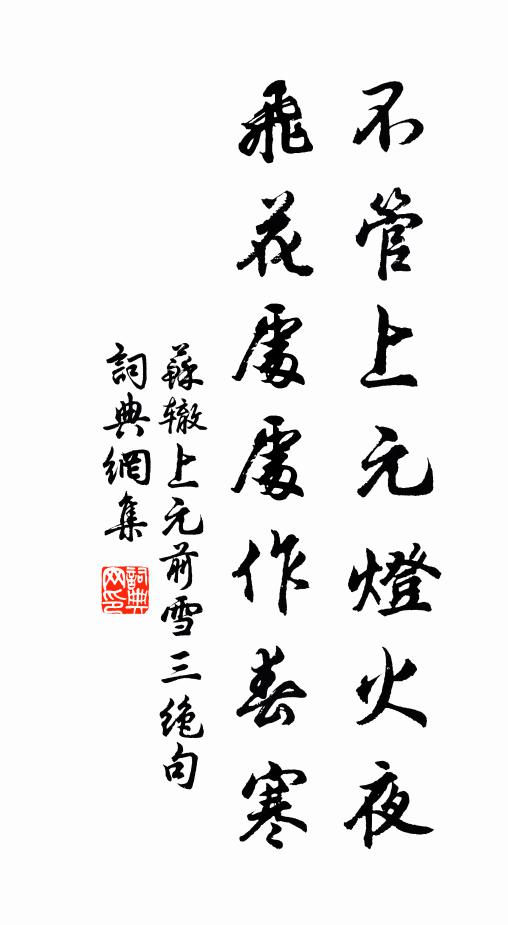 不管上元燈火夜
飛花處處作春寒
蘇辙上元前雪三绝句
詞典網集
詞典網印